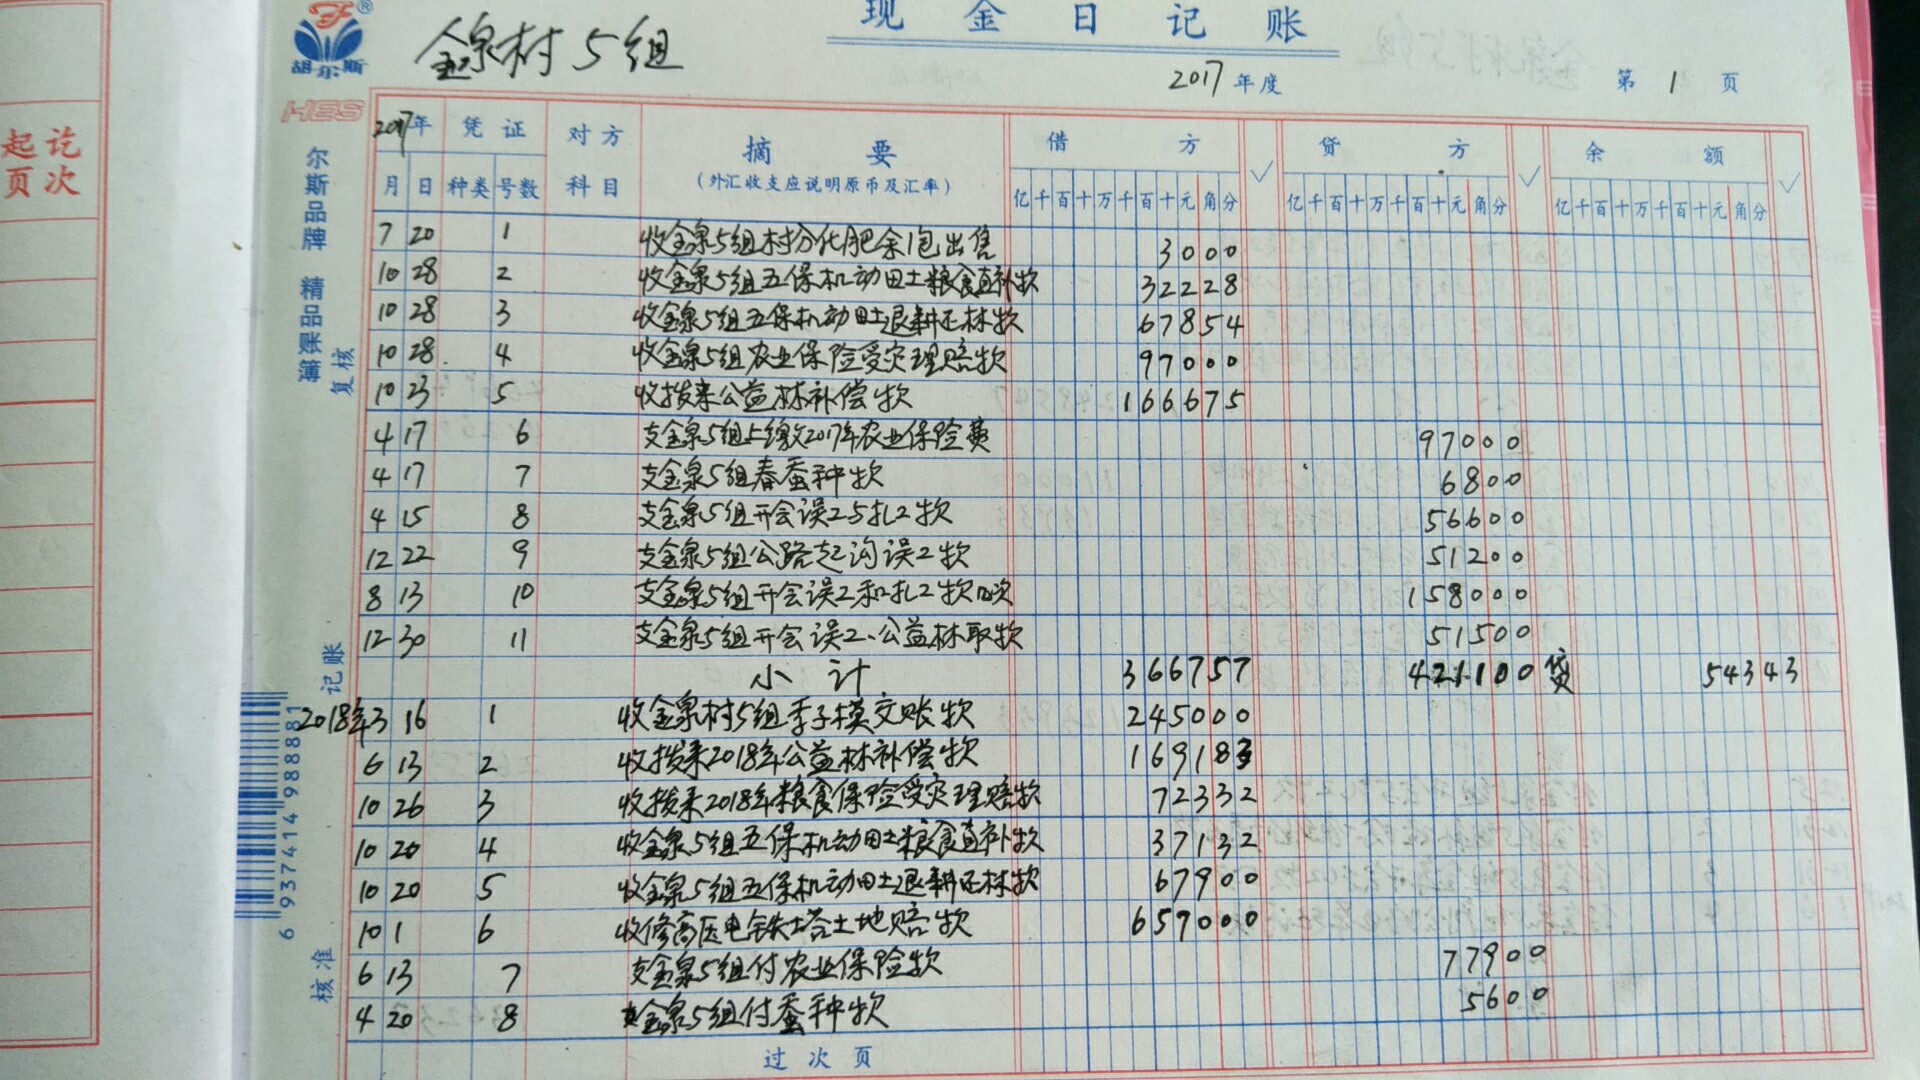 起讫
页次
胡尔斯
HES
金泉村5组
现金日记账
2017年度 第1页
尔斯品牌 精品
复核
记账
核准
6 937414 988881
2017年 凭证 对方 摘要 借方 贷方 余额
月 日 种类 号数 科目 (外汇收支应说明原币及汇率) 亿千百十万千百十元角分 亿千百十万千百十元角分 亿千百十万千百十元角分
7 20 1 收金泉5组村分化肥余1包出售 3000
10 28 2 收金泉5组五保机动田土粮食直补款 32228
10 28 3 收金泉5组五保机动田土退耕还林款 67854
10 28 4 收金泉5组农业保险受灾理赔款 97000
10 23 5 收拨来公益林补偿款 166675
4 17 6 支金泉5组上缴2017年农业保险费 97000
4 17 7 支金泉5组春蚕种款 6800
4 15 8 支金泉5组开会误工与扎工款 56600
12 22 9 支金泉5组公路起沟误工款 51200
8 13 10 支金泉5组开会误工和扎工款几次 158000
12 30 11 支金泉5组开会误工、公益林取款 51500
小计 366757 421100 贷 54343
2018年3 16 1 收金泉村5组李子模交账款 245000
6 13 2 收拨来2018年公益林补偿款 169183
10 26 3 收拨来2018年粮食保险受灾理赔款 72332
10 20 4 收金泉5组五保机动田土粮食直补款 37132
10 20 5 收金泉5组五保机动田土退耕还林款 67900
10 1 6 收修高压电铁塔土地赔款 657000
6 13 7 支金泉5组付农业保险款 77900
4 20 8 支金泉5组付蚕种款 5600
过次页